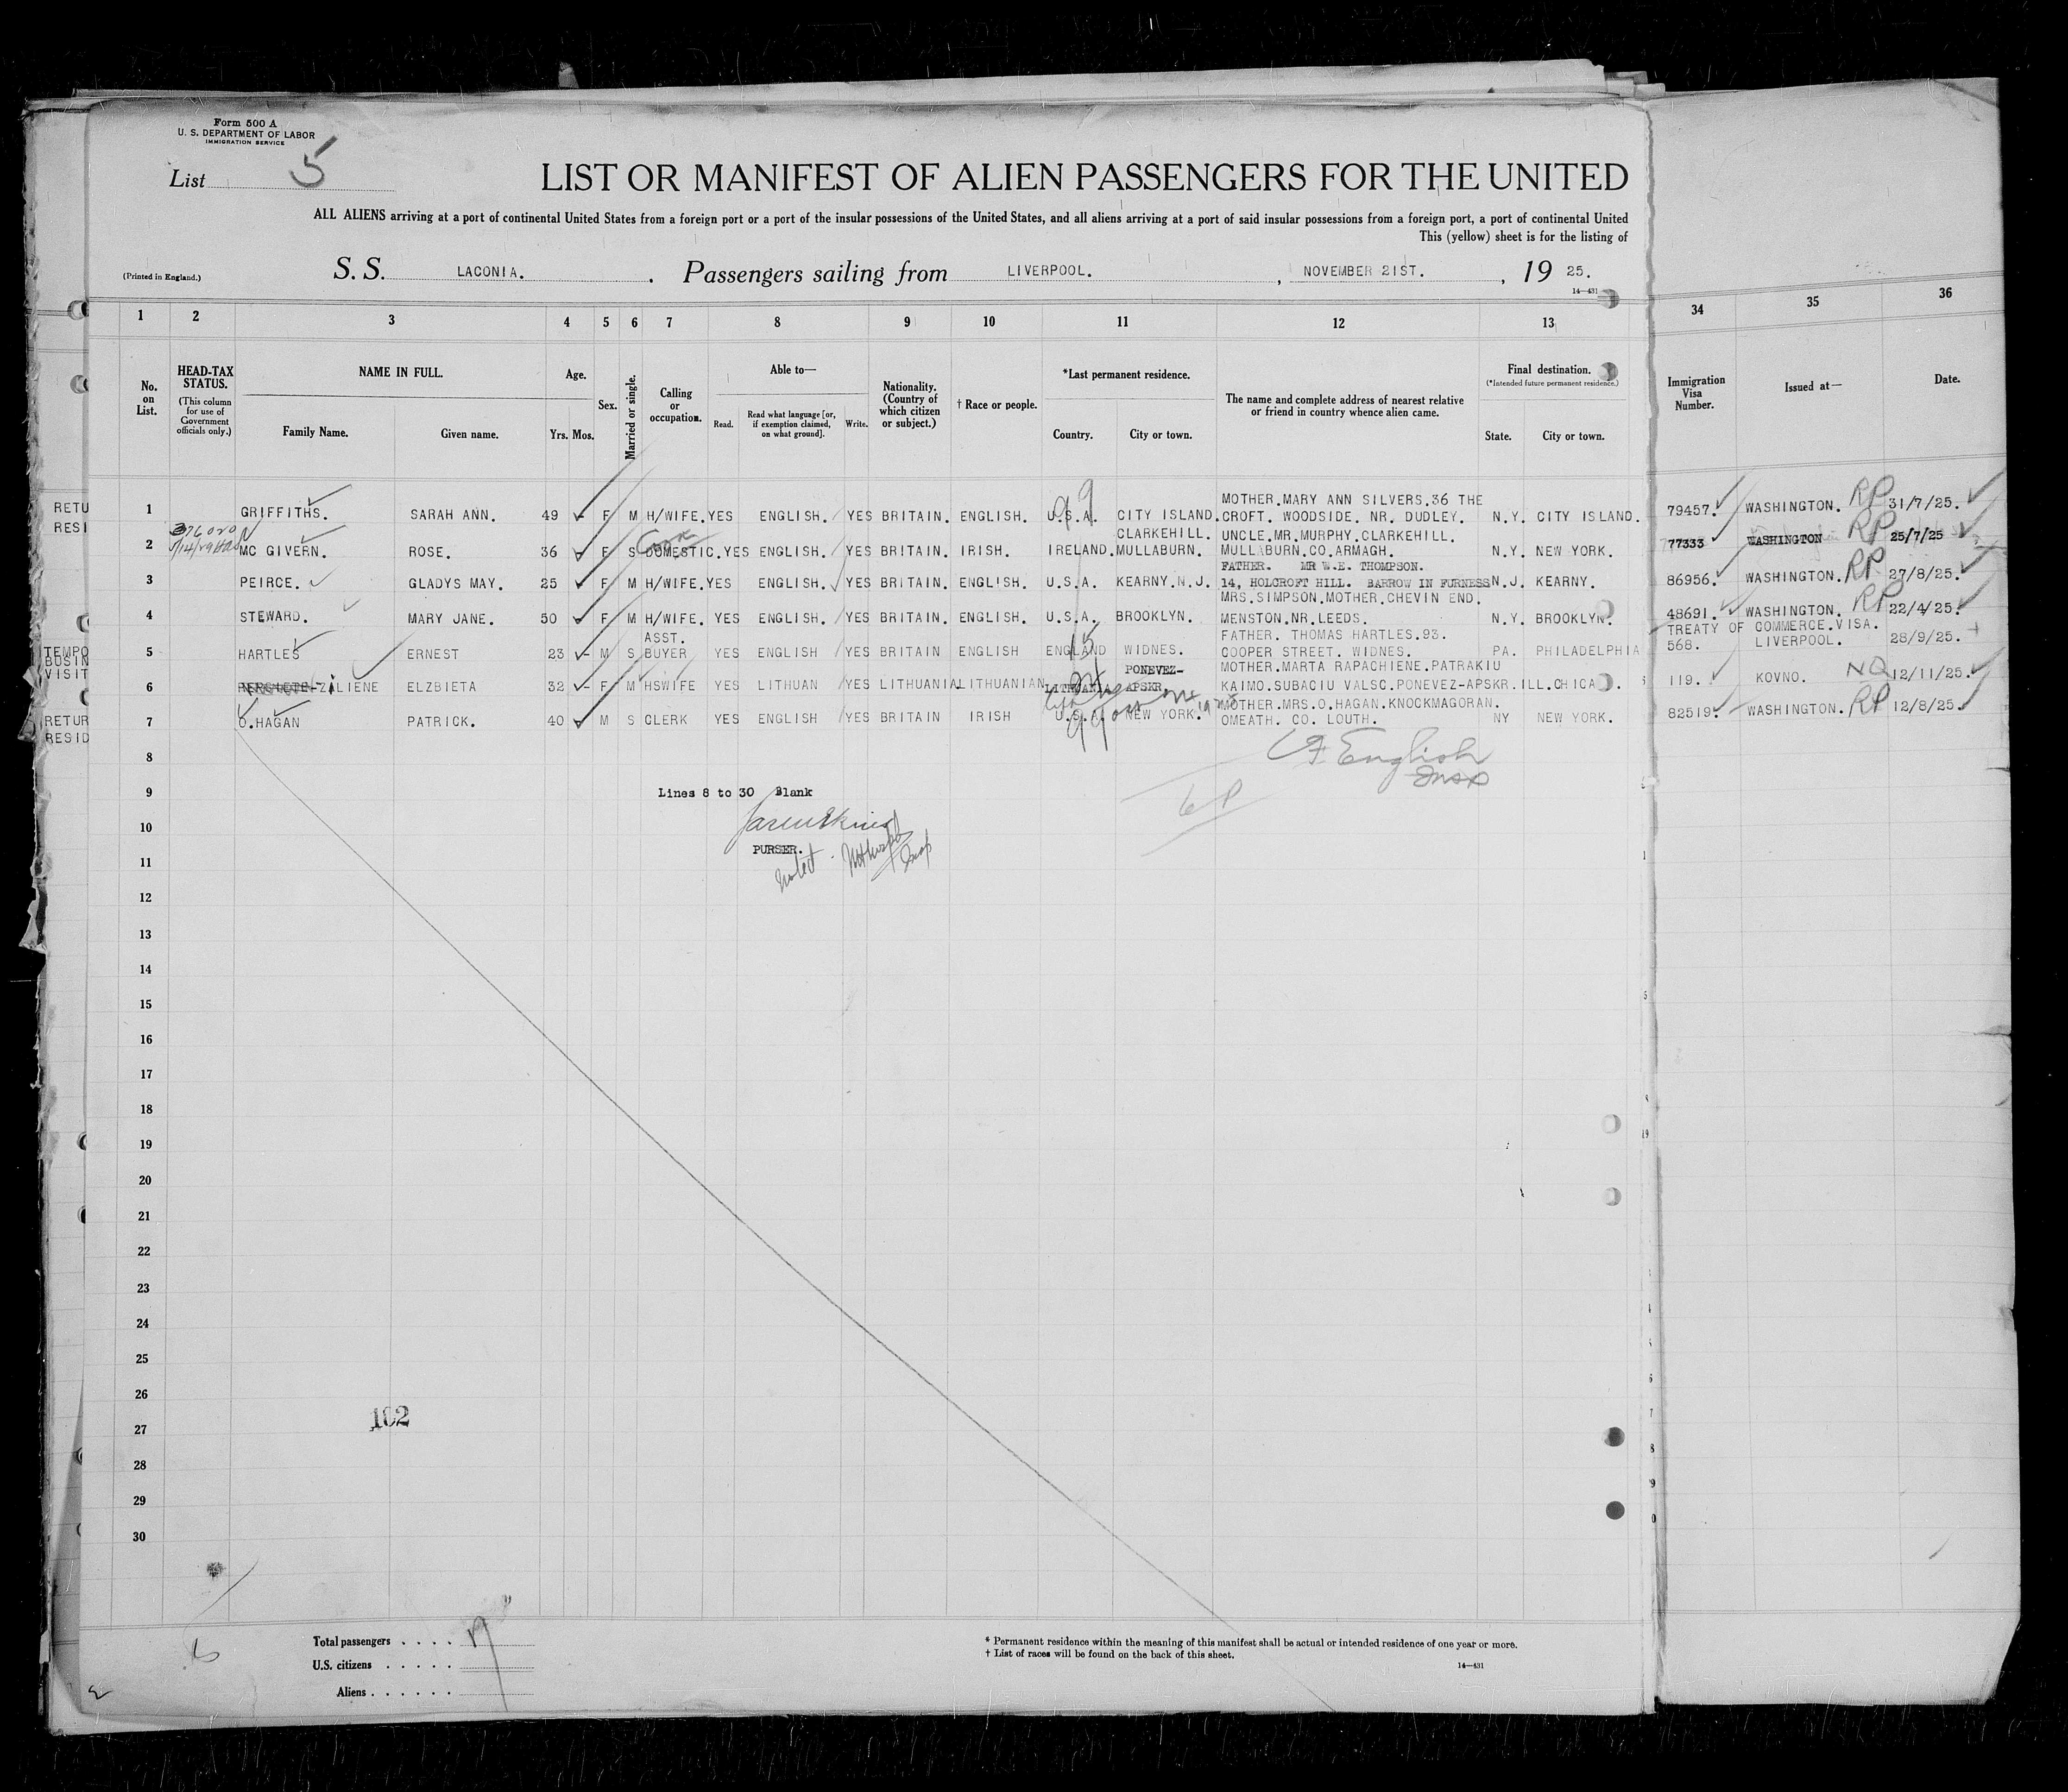 Form 500 A
U. S. DEPARTMENT OF LABOR
IMMIGRATION SERVICE
List 5
LIST OR MANIFEST OF ALIEN PASSENGERS FOR THE UNITED
ALL ALIENS arriving at a port of continental United States from a foreign port or a port of the insular possessions of the United States, and all aliens arriving at a port of said insular possessions from a foreign port, a port of continental United
This (yellow) sheet is for the listing of
(Printed in England.) S. S. LACONIA. Passengers sailing from LIVERPOOL. , NOVEMBER 21ST. , 19 25.
14—431
1 2 3 4 5 6 7 8 9 10 11 12 13 34 35 36
No. on List.
HEAD-TAX STATUS.
(This column for use of Government officials only.)
NAME IN FULL.
Family Name. Given name.
Age.
Yrs. Mos.
Sex.
Married or single.
Calling or occupation.
Able to—
Read. Read what language [or, if exemption claimed, on what ground]. Write.
Nationality. (Country of which citizen or subject.)
† Race or people.
*Last permanent residence.
Country. City or town.
The name and complete address of nearest relative or friend in country whence alien came.
Final destination.
(*Intended future permanent residence.)
State. City or town.
Immigration Visa Number.
Issued at—
Date.
RETU
RESI
MOTHER.MARY ANN SILVERS.36 THE
1 GRIFFITHS. SARAH ANN. 49 F M H/WIFE. YES ENGLISH. YES BRITAIN. ENGLISH. U.S.A. CITY ISLAND. CROFT. WOODSIDE. NR. DUDLEY. N.Y. CITY ISLAND. 79457. WASHINGTON. RP 31/7/25.
99
CLARKEHILL. UNCLE.MR.MURPHY.CLARKEHILL.
2 MC GIVERN. ROSE. 36 F S DOMESTIC. YES ENGLISH. YES BRITAIN. IRISH. IRELAND. MULLABURN. MULLABURN.CO.ARMAGH. N.Y. NEW YORK. 77333 WASHINGTON RP 25/7/25
Cook
FATHER. MR W.E. THOMPSON.
3 PEIRCE. GLADYS MAY. 25 F M H/WIFE. YES ENGLISH. YES BRITAIN. ENGLISH. U.S.A. KEARNY.N.J. 14, HOLCROFT HILL. BARROW IN FURNESS N.J. KEARNY. 86956. WASHINGTON. RP 27/8/25.
MRS.SIMPSON.MOTHER.CHEVIN END.
4 STEWARD. MARY JANE. 50 F M H/WIFE. YES ENGLISH. YES BRITAIN. ENGLISH. U.S.A. BROOKLYN. MENSTON.NR.LEEDS. N.Y. BROOKLYN. 48691. WASHINGTON. RP 22/4/25.
TEMPO
BUSIN
VISIT
ASST. FATHER. THOMAS HARTLES.93. TREATY OF COMMERCE.VISA.
5 HARTLES ERNEST 23 M S BUYER YES ENGLISH YES BRITAIN ENGLISH ENGLAND WIDNES. COOPER STREET. WIDNES. PA. PHILADELPHIA 568. LIVERPOOL. 28/9/25.
15
PONEVEZ- MOTHER.MARTA RAPACHIENE.PATRAKIU
6 ZILIENE ELZBIETA 32 F M HSWIFE YES LITHUAN YES LITHUANIA. LITHUANIAN LITHUANIA APSKR KAIMO.SUBACIU VALSC.PONEVEZ-APSKR. ILL. CHICAGO. 119. KOVNO. NQ 12/11/25.
RETUR
RESID
MOTHER.MRS.O.HAGAN.KNOCKMAGORAN.
7 O.HAGAN PATRICK. 40 M S CLERK YES ENGLISH YES BRITAIN IRISH U.S.A. NEW YORK. OMEATH. CO. LOUTH. NY NEW YORK. 82519. WASHINGTON. RP 12/8/25.
99
8
English
Insp
9 Lines 8 to 30 Blank
10
PURSER.
11
noted
Insp
12
13
14
15
16
17
18
19
20
21
22
23
24
25
26
102
27
28
29
30
Total passengers . . . . 7
U.S. citizens . . . . .
Aliens . . . . . .
* Permanent residence within the meaning of this manifest shall be actual or intended residence of one year or more.
† List of races will be found on the back of this sheet.
14—431